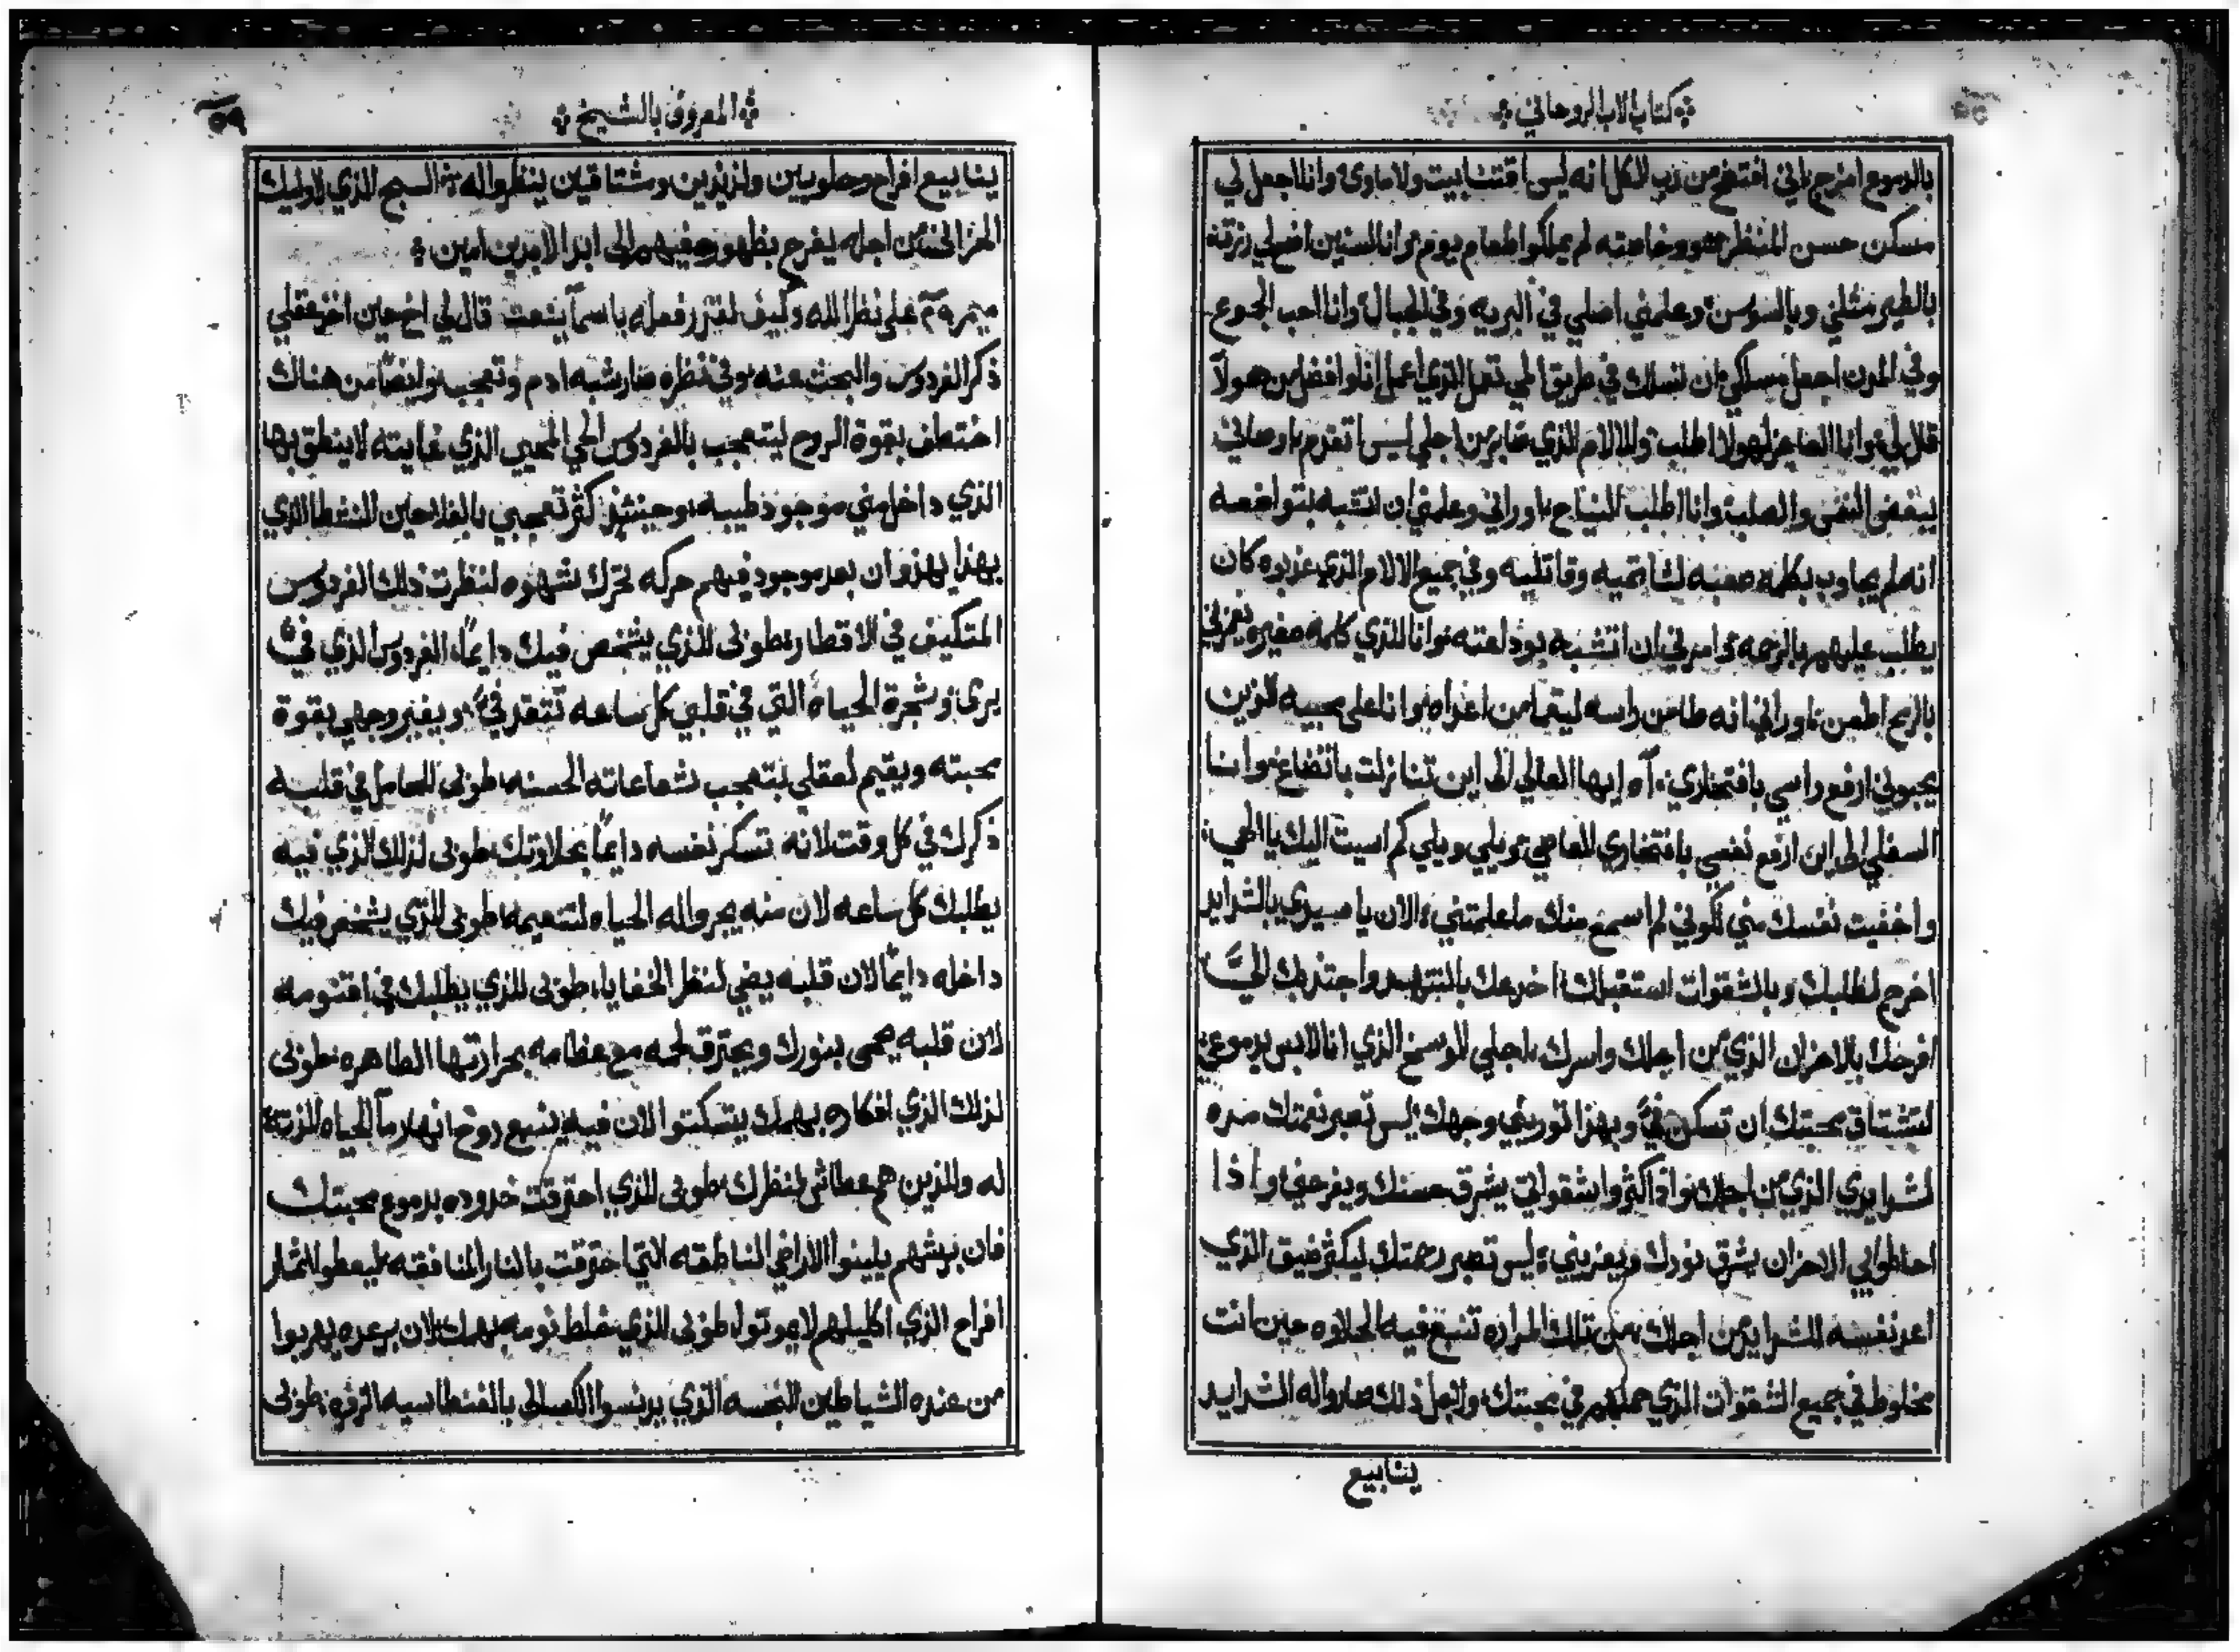 كتاب الاب الروحاني
بالدموع امزج ياني افتضح من رب الكل انه ليس اقتنا بيت ولا ماوى وانا اجعل لي
مسكن حسن المنظر هو وخاصته لم يملكوا طعام يوم وانا لسنين اضع لي رزقه
بالطير مثلني وبالسوسن وعلمني اصلي في البريه وفي الجبال وانا احب الجوع
وفي المدن اجعل مسلكي ان تسلك في طريق الهي تعمل الذي اعمل انا وافضل من هولا
قال لي وانا العاجز لهولا اطلب وللالام الذي صابر من اجلي ليس اتقدم
يبغض النفس والصليب وانا اطلب النياح اوراني وعلمني ان اتشبه بتواضعه
انه لم يجاوب بكلمه صعبه لشاتميه وقاتليه وفي جميع الالام الذي عذبوه كان
يطلب عليهم بالرحمه وامرني ان اتشبه بوداعته وانا للذي كلمه صغيره يعزلني
بالريح اطعن اوراني انه طامن راسه ليتفا من اعداه وانا على محبيه الذين
يحبوني ارفع راسي بافتخاري اه ايها العالي الى اين تنازلت باتضاع وانا
السفلي الى اين ارفع نفسي بافتخاري العاصي ويلي ويلي كم اسيت اليك يا الهي
واخفيت نفسك مني لكوني لم اسمع منك ما علمتني الان يا سيدي بالشدايد
اخرج لطلبك وبالشقوات استقبلك اخدعك بالتنهد واجتذبك اليَّ
افرحك بالاحزان الذي من اجلك واسرك باجلي للوسخ الذي انا لابس بدموعي
لتشتاق محبتك ان تسكن فيَّ وبهذا توريني وجهك ليس تصبر نعمتك ضده
لشدايدي الذي من اجلك واذا كثروا شقواتي يشرق حسنك ويفرحني واذا
احاطوا بي الاحزان يشرق نورك ويعزيني ليس تصبر رحمتك ليكثر ضيق الذي
اعد نفسه للشدايد من اجلك من تلك المراره تنبع فيه الحلاوه حين انت
مخلوط في جميع الشقوات الذي حملهم في محبتك ولاجل ذلك صاروا له الشدايد
ينابيع
المعروف بالشيخ
٥٩
ينابيع افراح وحلويين ولذيذين ومشتاقين ينظروا له السبح الذي لاوليك
الهذا الحسن اجله يفرح بظهوره فيهم الى ابد الابدين امين
ميمر على نظر الله وكيف لقدر فعله باسما ينعت قال لي اخ حين اخذ عقلي
ذكر الفردوس والبحث عنه وفي نظره صار شبه ادم وتعجب وايضًا من هناك
اختطف بقوة الروح ليتعجب بالفردوس الحي المحيي الذي غايته لا ينطق بها
الذي داخل مني موجود طيبه وحينئذ كثر تعجبي بالفلاحين النشطا الذي
بهذا يهذوا ان بعد موجود فيهم حركه تحرك لشهوه لنظرت ذلك الفردوس
المتكيف في الاقطار طوبى للذي يشخص فيك دايمًا الفردوس الذي فيَّ
يرى وشجرة الحياه التي في قلبي كل ساعه تتقد فيَّ ويغير وجهي بقوة
محبته ويقيم لعقلي بتعجب بشعاعاته الحسنه طوبى للحامل في قلبه
ذكرك في كل وقت لانه تسكر نفسه دايمًا بحلاوتك طوبى لذلك الذي فيه
يطلبك كل ساعه لان منه يجروا له الحياه لتنعيمه طوبى للذي يشخص فيك
داخله دايمًا لان قلبه يضي لنظر الخفايا طوبى للذي يطلبك في اقنومه
لان قلبه يحمى بنورك ويحترق لحمه مع عظامه بحرارتها الطاهره طوبى
لذلك الذي افكاره بهمك يتسكتوا لان فيه ينبع روح انهار ما الحياه للذته
له والذين هم عطاش لمنظرك طوبى للذي احترقت خدوده بدموع محبتك
فان برشهم يلينوا الاراضي الناطقه التي احترقت بالنار المنافقه ليعطوا اثمار
افراح الذي اكليلهم لا يموتوا طوبى للذي خلط نومه بهمك لان برعده يهربوا
من عنده الشياطين النجسه الذي يدنسوا الكسالى بالفنطاسيه الرديه طوبى